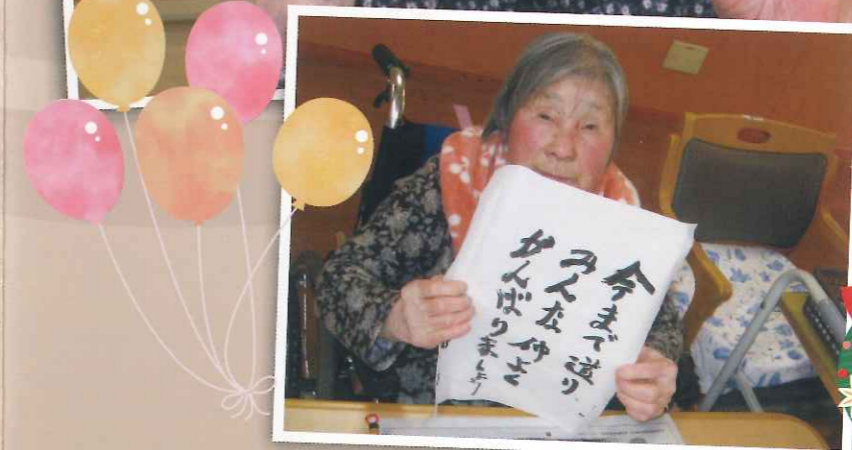 今まで通り
みんな仲よく
がんばりましょう